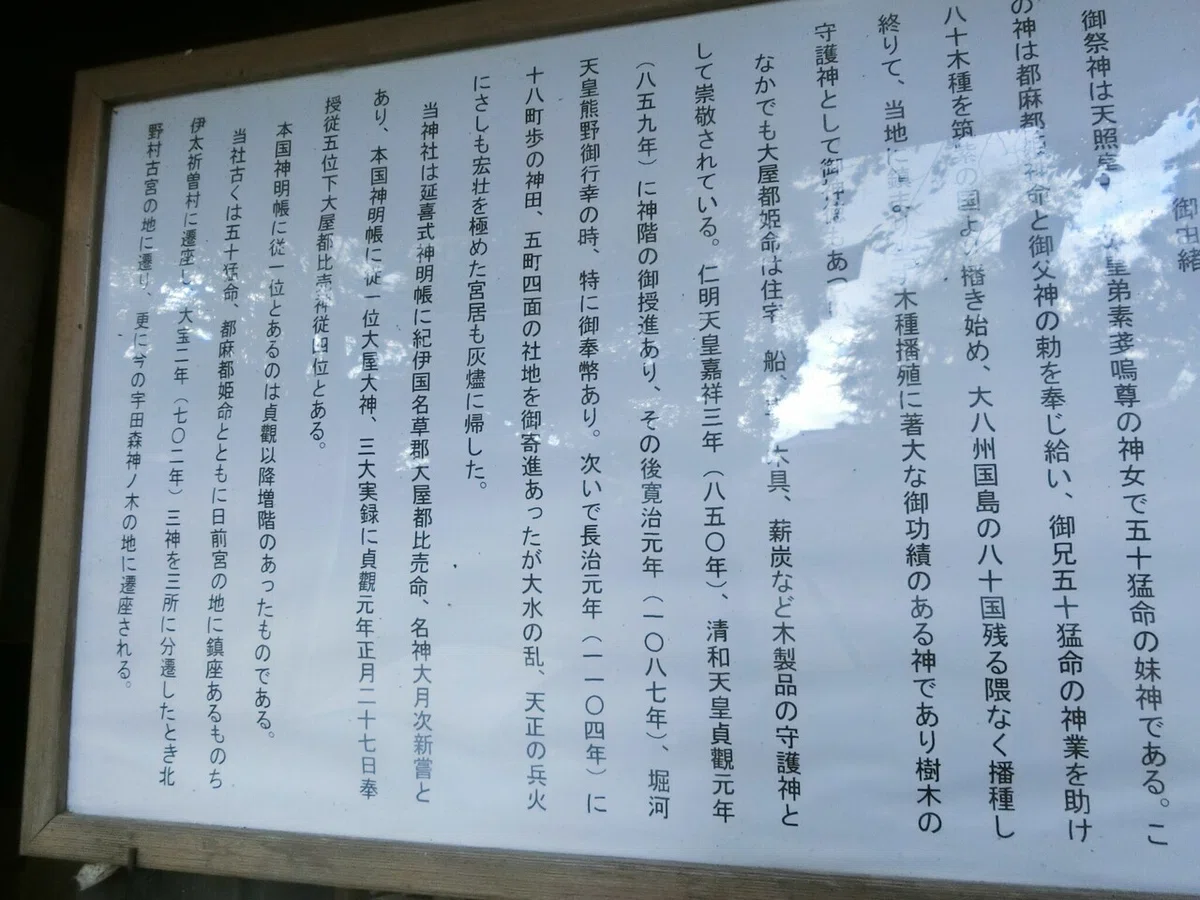 御由緒
御祭神は天照 皇弟素戔嗚尊の神女で五十猛命の妹神である。こ
の神は都麻都 神命と御父神の勅を奉じ給い、御兄五十猛命の神業を助け
八十木種を筑紫の国より播き始め、大八州国島の八十国残る隈なく播種し
終りて、当地に鎮 木種播殖に著大な御功績のある神であり樹木の
守護神として御 あ
なかでも大屋都姫命は住宅 船、 木具、薪炭など木製品の守護神と
して崇敬されている。仁明天皇嘉祥三年（八五〇年）、清和天皇貞觀元年
（八五九年）に神階の御授進あり、その後寛治元年（一〇八七年）、堀河
天皇熊野御行幸の時、特に御奉幣あり。次いで長治元年（一一〇四年）に
十八町歩の神田、五町四面の社地を御寄進あったが大水の乱、天正の兵火
にさしも宏壮を極めた宮居も灰燼に帰した。
当神社は延喜式神明帳に紀伊国名草郡大屋都比売命、名神大月次新嘗と
あり、本国神明帳に従一位大屋大神、三大実録に貞觀元年正月二十七日奉
授従五位下大屋都比売神従四位とある。
本国神明帳に従一位とあるのは貞觀以降増階のあったものである。
当社古くは五十猛命、都麻都姫命とともに日前宮の地に鎮座あるものち
伊太祈曽村に遷座し、大宝二年（七〇二年）三神を三所に分遷したとき北
野村古宮の地に遷り、更に今の宇田森神ノ木の地に遷座される。